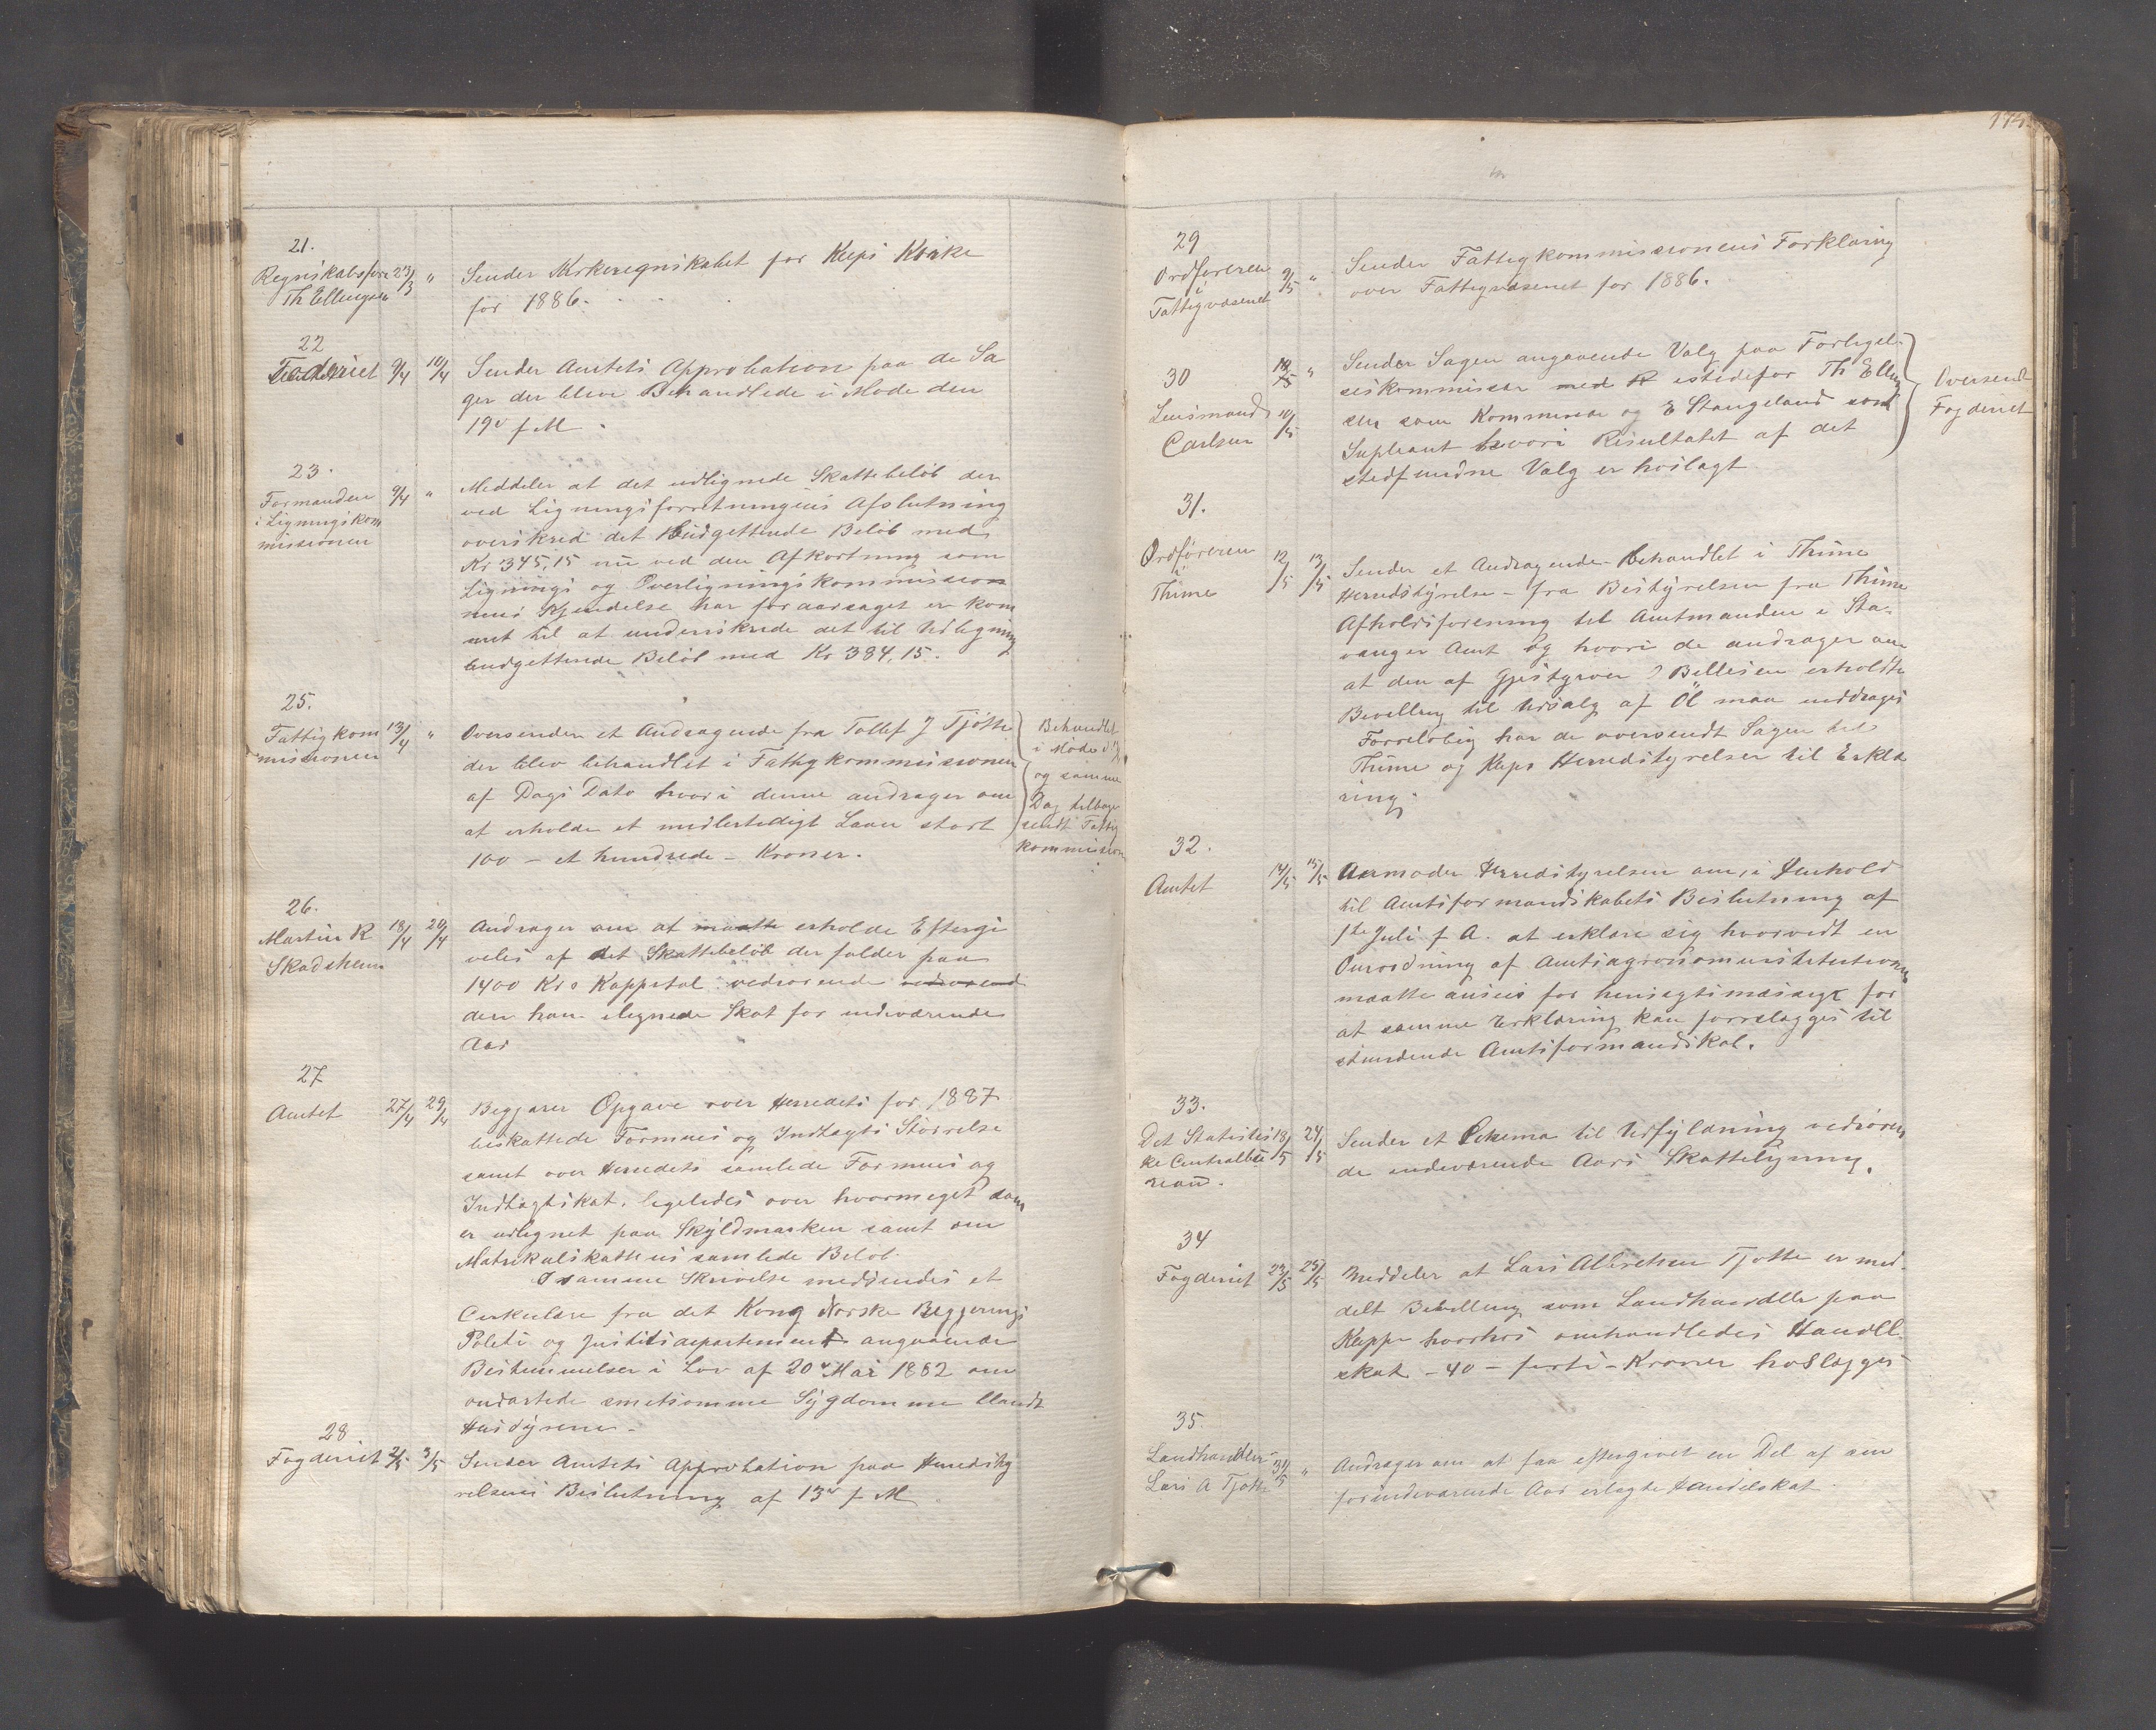 21.
Regnskabsfører 23/3 " Sender Kirkeregnskabet for Kleps Kirke
Th Ellingsen for 1886.
22
Fogderiet 9/4 10/4 Sender Amtets Approbation paa de Sa
ger der bleve Behandlede i Møde den
19de f M.
23.
Formanden 9/4 " Meddeler at det udlignede Skattebeløb der
i Ligningskom ved Ligningsforretningens Afslutning
missionen overskred det Budgetterede Beløb med
Kr 345,15 nu ved den Afkortning som
Lignings og Overligningskommission
nens Kjendelse har foraarsaget er kom
met til at underskride det til Udligning
budgetterede Beløb med Kr 384,15.
25.
Fattigkom 13/4 " Oversender et Andragende fra Tollef J Tjøtta
missionen der blev behandlet i Fattigkommissionen
af Dags Dato hvori denne andrager om
at erholde et midlertidigt Laan stort
100 - et hundrede - Kroner.
Behandlet
i Møde d
og samme
Dag tilbage
sendt Fattig
kommission
26.
Martin R 18/4 20/4 Andrager om at maatte erholde Eftergi
Skadsheim velse af det Skattebeløb der falder paa
1400 Krs Kappital vedrørende vedrørend
den ham ilignede Skat for indeværende
Aar
27
Amtet 27/4 29/4 Begjærer Opgave over Herredets for 1887
beskattede Formues og Indtægts Størrelse
samt over Herredets samlede Formues og
Indtægtskat. ligeledes over hvormeget som
er udlignet paa Skyldmarken samt om
Matrikulskattens samlede Beløb.
I samme Skrivelse meddeles et
Cirkulære fra det Kong Norske Regjerings
Politi og Justitsdepartement angaaende
Bestemmelser i Lov af 20de Mai 1882 om
ondartede smitsomme Sygdomme blandt
Husdyrene.
28
Fogderiet 2/5 3/5 Sender Amtets Approbation paa Herredsty
relsens Beslutning af 13de f M.
175
29
Ordføreren 9/5 " Sender Fattigkommissionens Forklaring
i over Fattigvæsenet for 1886.
Fattigvæsenet
30 18/5 " Sender Sagen angaaende Valg paa Forligel-
Lensmand 10/5 seskommissær med R istedefor Th Elling
Carlsen sen som Kommissær og E Stangeland som
Supleant hvori Resultatet af det
stedfundne Valg er hoslagt
Oversendt
Fogderiet
31.
Ordføreren 12/5 13/5 Sender et Andragende - behandlet i Thime
i Herredstyrelse - fra Bestyrelsen fra Thime
Thime Afholdsforening til Amtmanden i Sta-
vanger Amt og hvori de andrager om
at den af Gjestgiver J Bellesen erholdte
Bevilling til Udsalg af Öl maa inddrages
Forreløbig har de oversendt Sagen til
Thime og Kleps Herredstyrelser til Erklæ
ring.
32.
Amtet 14/5 15/5 Anmoder Herredstyrelsen om, i Henhold
til Amtsformandskabets Beslutning af
1ste Juli f A. at erklære sig hvorvidt en
Omordning af Amtsagronominstitutionen
maatte ansees for hensigtsmæssigt for
at samme Erklæring kan forrelægges til
stundende Amtsformandskab.
33.
Det Statistis 18/5 24/5 Sender et Schema til Udfyldning vedrøren
ke Centralbü de indeværende Aars Skatteligning.
reau.
34
Fogderiet 24/5 25/5 Meddeler at Lars Albretsen Tjøtta er med-
delt Bevilling som Landhandler paa
Kleppe hvorhos omhandledes Handel
skat - 40 - forti - Kroner hoslægges
35.
Landhandler 31/5 " Andrager om at faa eftergivet en Del af sin
Lars A Tjøtta for indeværende Aar erlagte Handelskat.